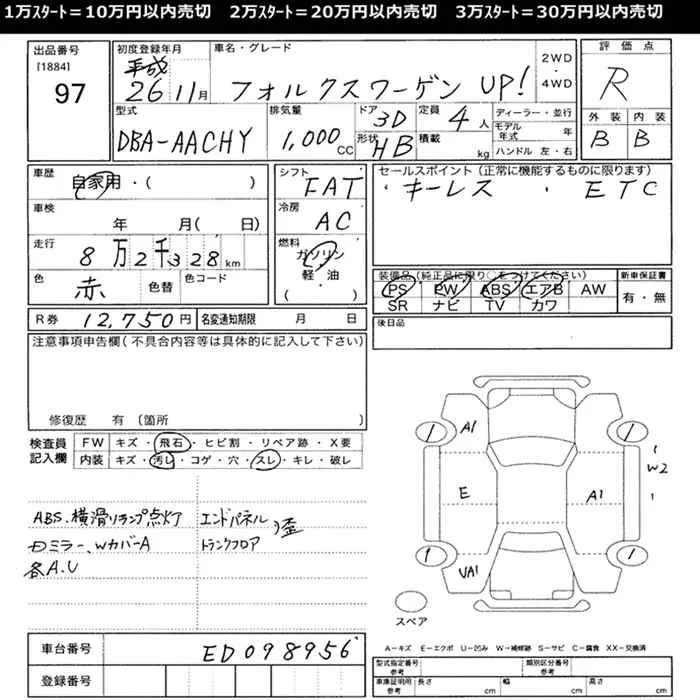 1万ｽﾀｰﾄ＝10万円以内売切　2万ｽﾀｰﾄ＝20万円以内売切　3万ｽﾀｰﾄ＝30万円以内売切
出品番号
[1884]
97
初度登録年月
平成
26 11月
車名・グレード
フォルクスワーゲン UP!
2WD
・
4WD
評価点
R
外装 内装
B B
型式
DBA-AACHY
排気量
1,000 CC
ドア 3D
形状 HB
定員 4 人
積載 kg
ディーラー・並行
モデル年式 年
ハンドル 左・右
車歴
自家用・( )
車検
年 月( 日)
走行
8万2千328km
色
赤 色替
色コード
シフト
FAT
冷房
AC
燃料
ガソリン
軽・油
( )
セールスポイント(正常に機能するものに限ります)
・キーレス ・ETC
装備品(純正品に限り○をつけてください)
PS PW ABS エアB AW
SR ナビ TV カワ
新車保証書
有・無
後日品
R券 12,750円
名変通知期限 月 日
注意事項申告欄(不具合内容等は具体的に記入して下さい)
修復歴 有 (箇所 )
検査員
記入欄
FW キズ・飛石・ヒビ割・リペア跡・X要
内装 キズ・汚レ・コゲ・穴・スレ・キレ・破レ
ABS.横滑りランプ点灯
Dミラー、WカバーA
各A.U
エンドパネル
トランクフロア
歪
A1
E
UA1
A1
W2
スペア
A－キズ E－エクボ U－凹み W－補修跡 S－サビ C－腐食 XX－交換済
車台番号
ED098956
登録番号
型式指定番号
参考
類別区分番号
参考
車庫証明用
参考
長さ cm
幅 cm
高さ cm